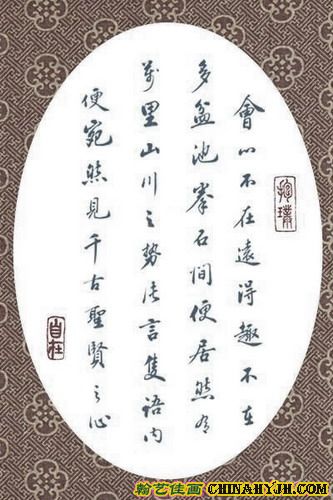 會心不在遠得趣不在
多盆池拳石間便居然有
萬里山川之勢片言隻語內
便宛然見千古聖賢之心
抱璞
自在
翰艺佳画 CHINAHYJH.COM